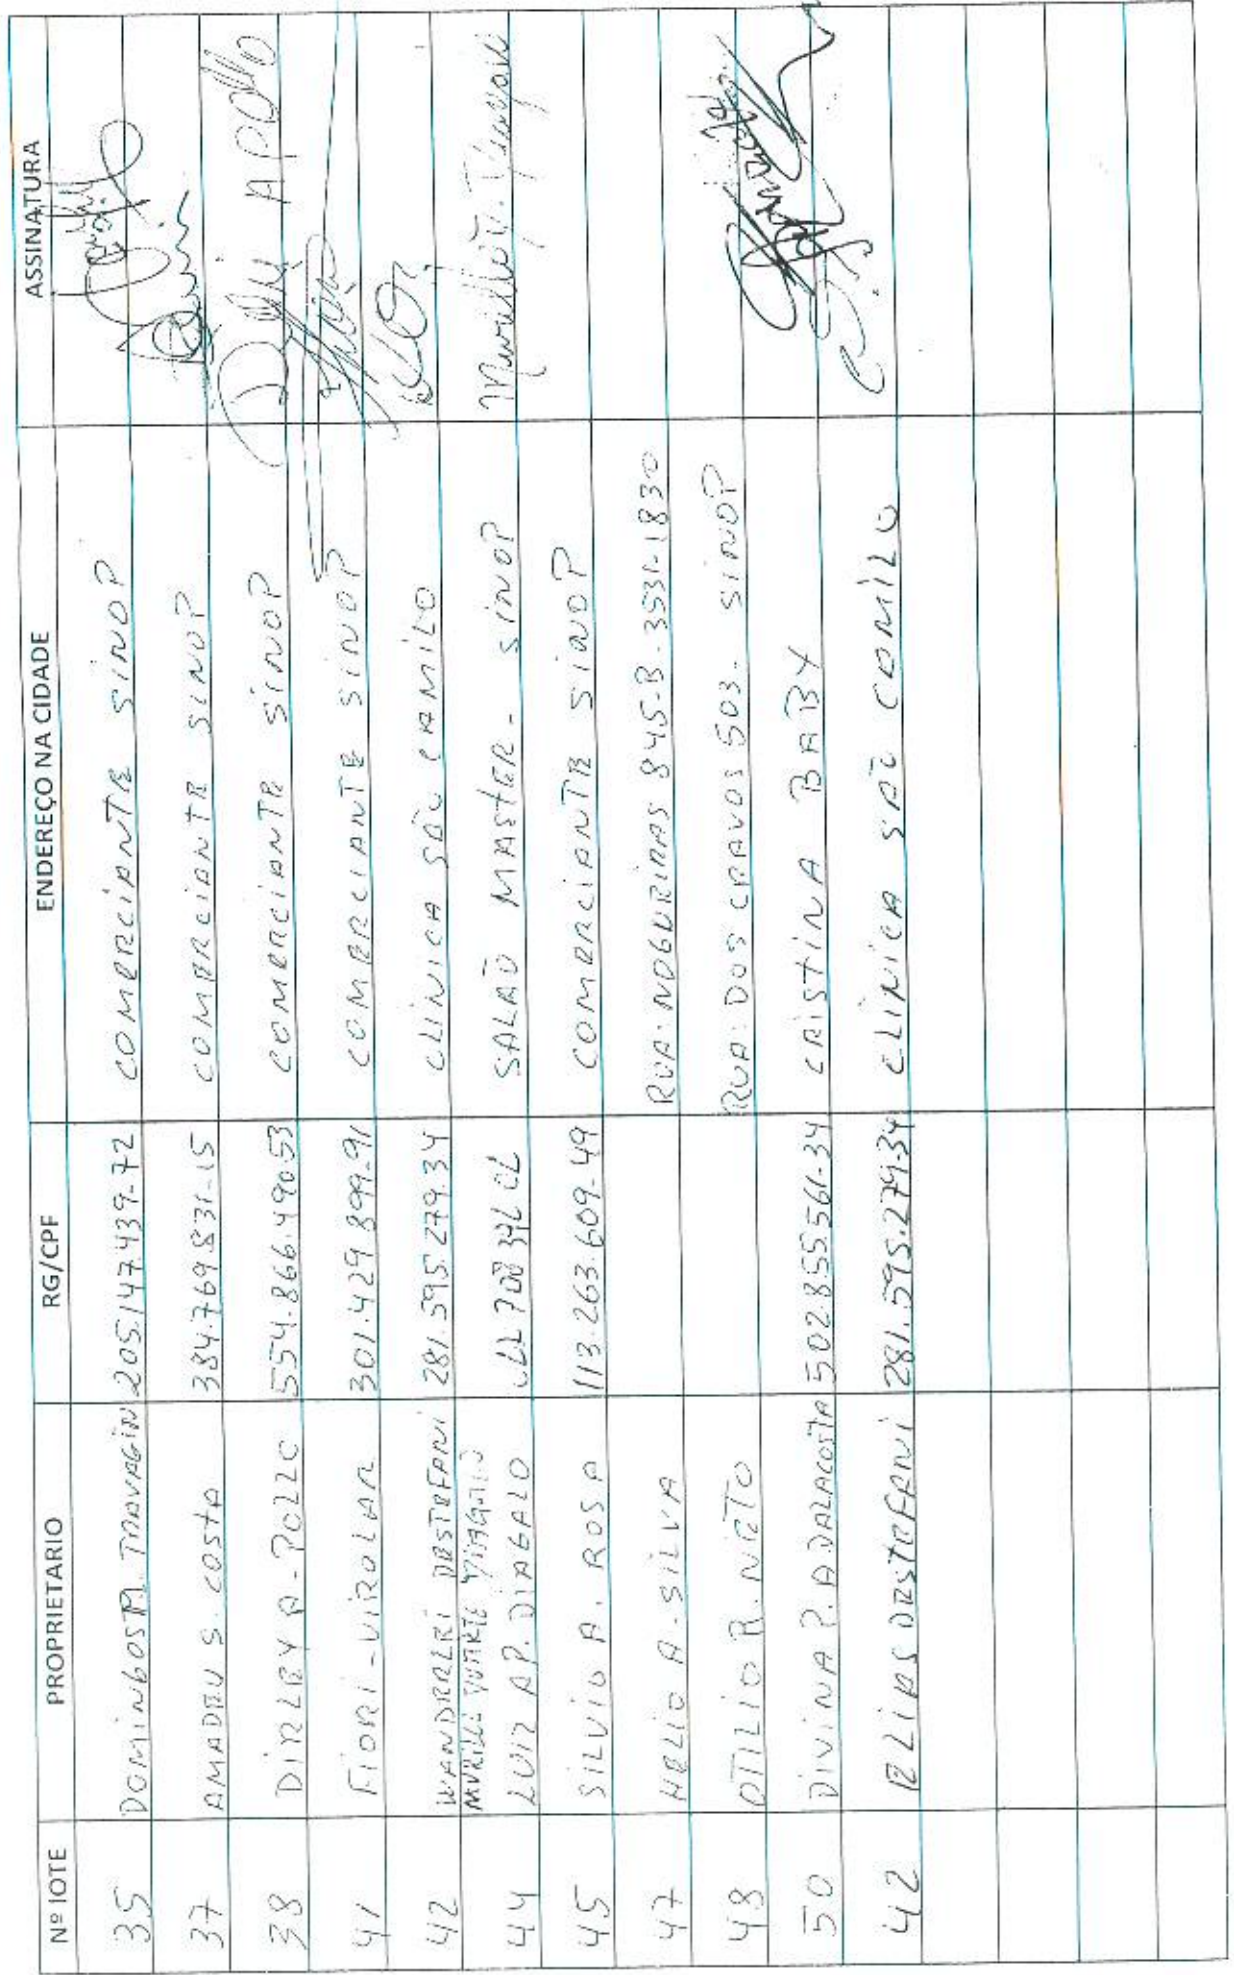 Nº lOTE PROPRIETARIO RG/CPF ENDEREÇO NA CIDADE ASSINATURA
35 DOMINGOS A. TRAVAGIN 205.147.439-72 COMERCIANTE SINOP
37 AMADEU S. COSTA 384.769.831-15 COMERCIANTE SINOP
38 DIRLEY A-POLLO 554.866.490 53 COMERCIANTE SINOP Dirley A POllO
41 FIORI-VIROLAR 301.429.899-91 COMERCIANTE SINOP
42 WANDERLEI DESTEFANI 281.595.279.34 CLINICA SÃO CAMILO
44 LUIZ AP. DIAGALO SALÃO MASTER - SINOP
45 SILVIO A. ROSA 113.263.609-49 COMERCIANTE SINOP
47 HELIO A-SILVA RUA. NOGUEIRAS 845.B-3531-1830
48 OTILIO R. NETO RUA: DOS CRAVOS 503. SINOP
50 DIVINA P. A DALACOSTA 502.855.561-34 CRISTINA BABY
42 ELIAS DESTEFANI 281.595.279-34 CLINICA SÃO COMILO